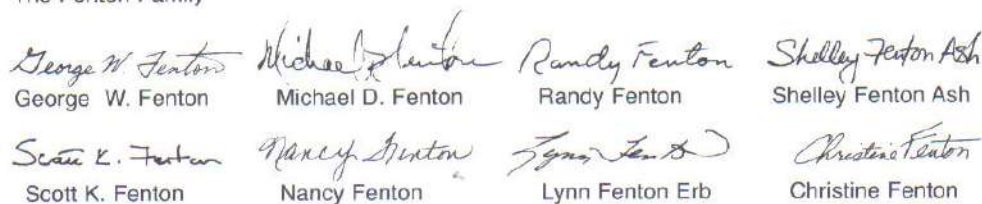 The Fenton Family
George W. Fenton Michael D. Fenton Randy Fenton Shelley Fenton Ash
George W. Fenton Michael D. Fenton Randy Fenton Shelley Fenton Ash
Scott K. Fenton Nancy Fenton Lynn Fenton Christine Fenton
Scott K. Fenton Nancy Fenton Lynn Fenton Erb Christine Fenton